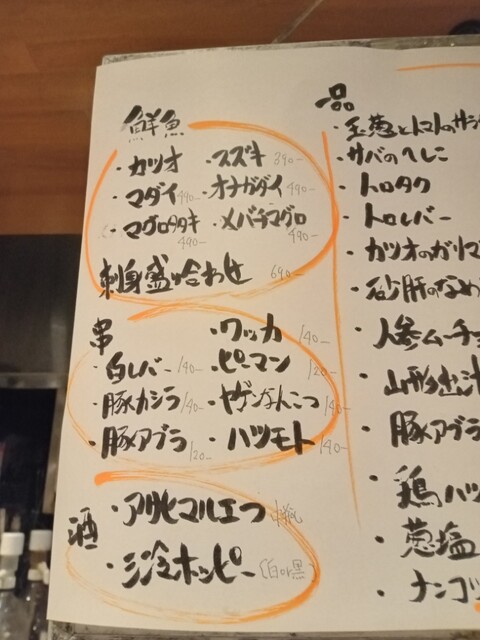 鮮魚
・カツオ ・スズキ 390-
・マダイ 490- ・オナガダイ 490-
・マグロタタキ 490- ・メバチマグロ 490-
刺身盛り合わせ 690-
串
・ワッカ 140-
・白レバー 140- ・ピーマン 120-
・豚カシラ 140- ・ヤゲンなんこつ 140-
・豚アブラ 120- ・ハツモト 140-
酒
・アサヒマルエフ
・三冷ホッピー (白or黒)
一品
・玉葱とトマトのサラダ
・サバのへしこ
・トロタク
・トロレバー
・カツオのガリマ
・砂肝のなめ
・人参ムーチョ
・山形出汁
・豚アブラ
・鶏ハツ
・葱塩
・ナンコツ